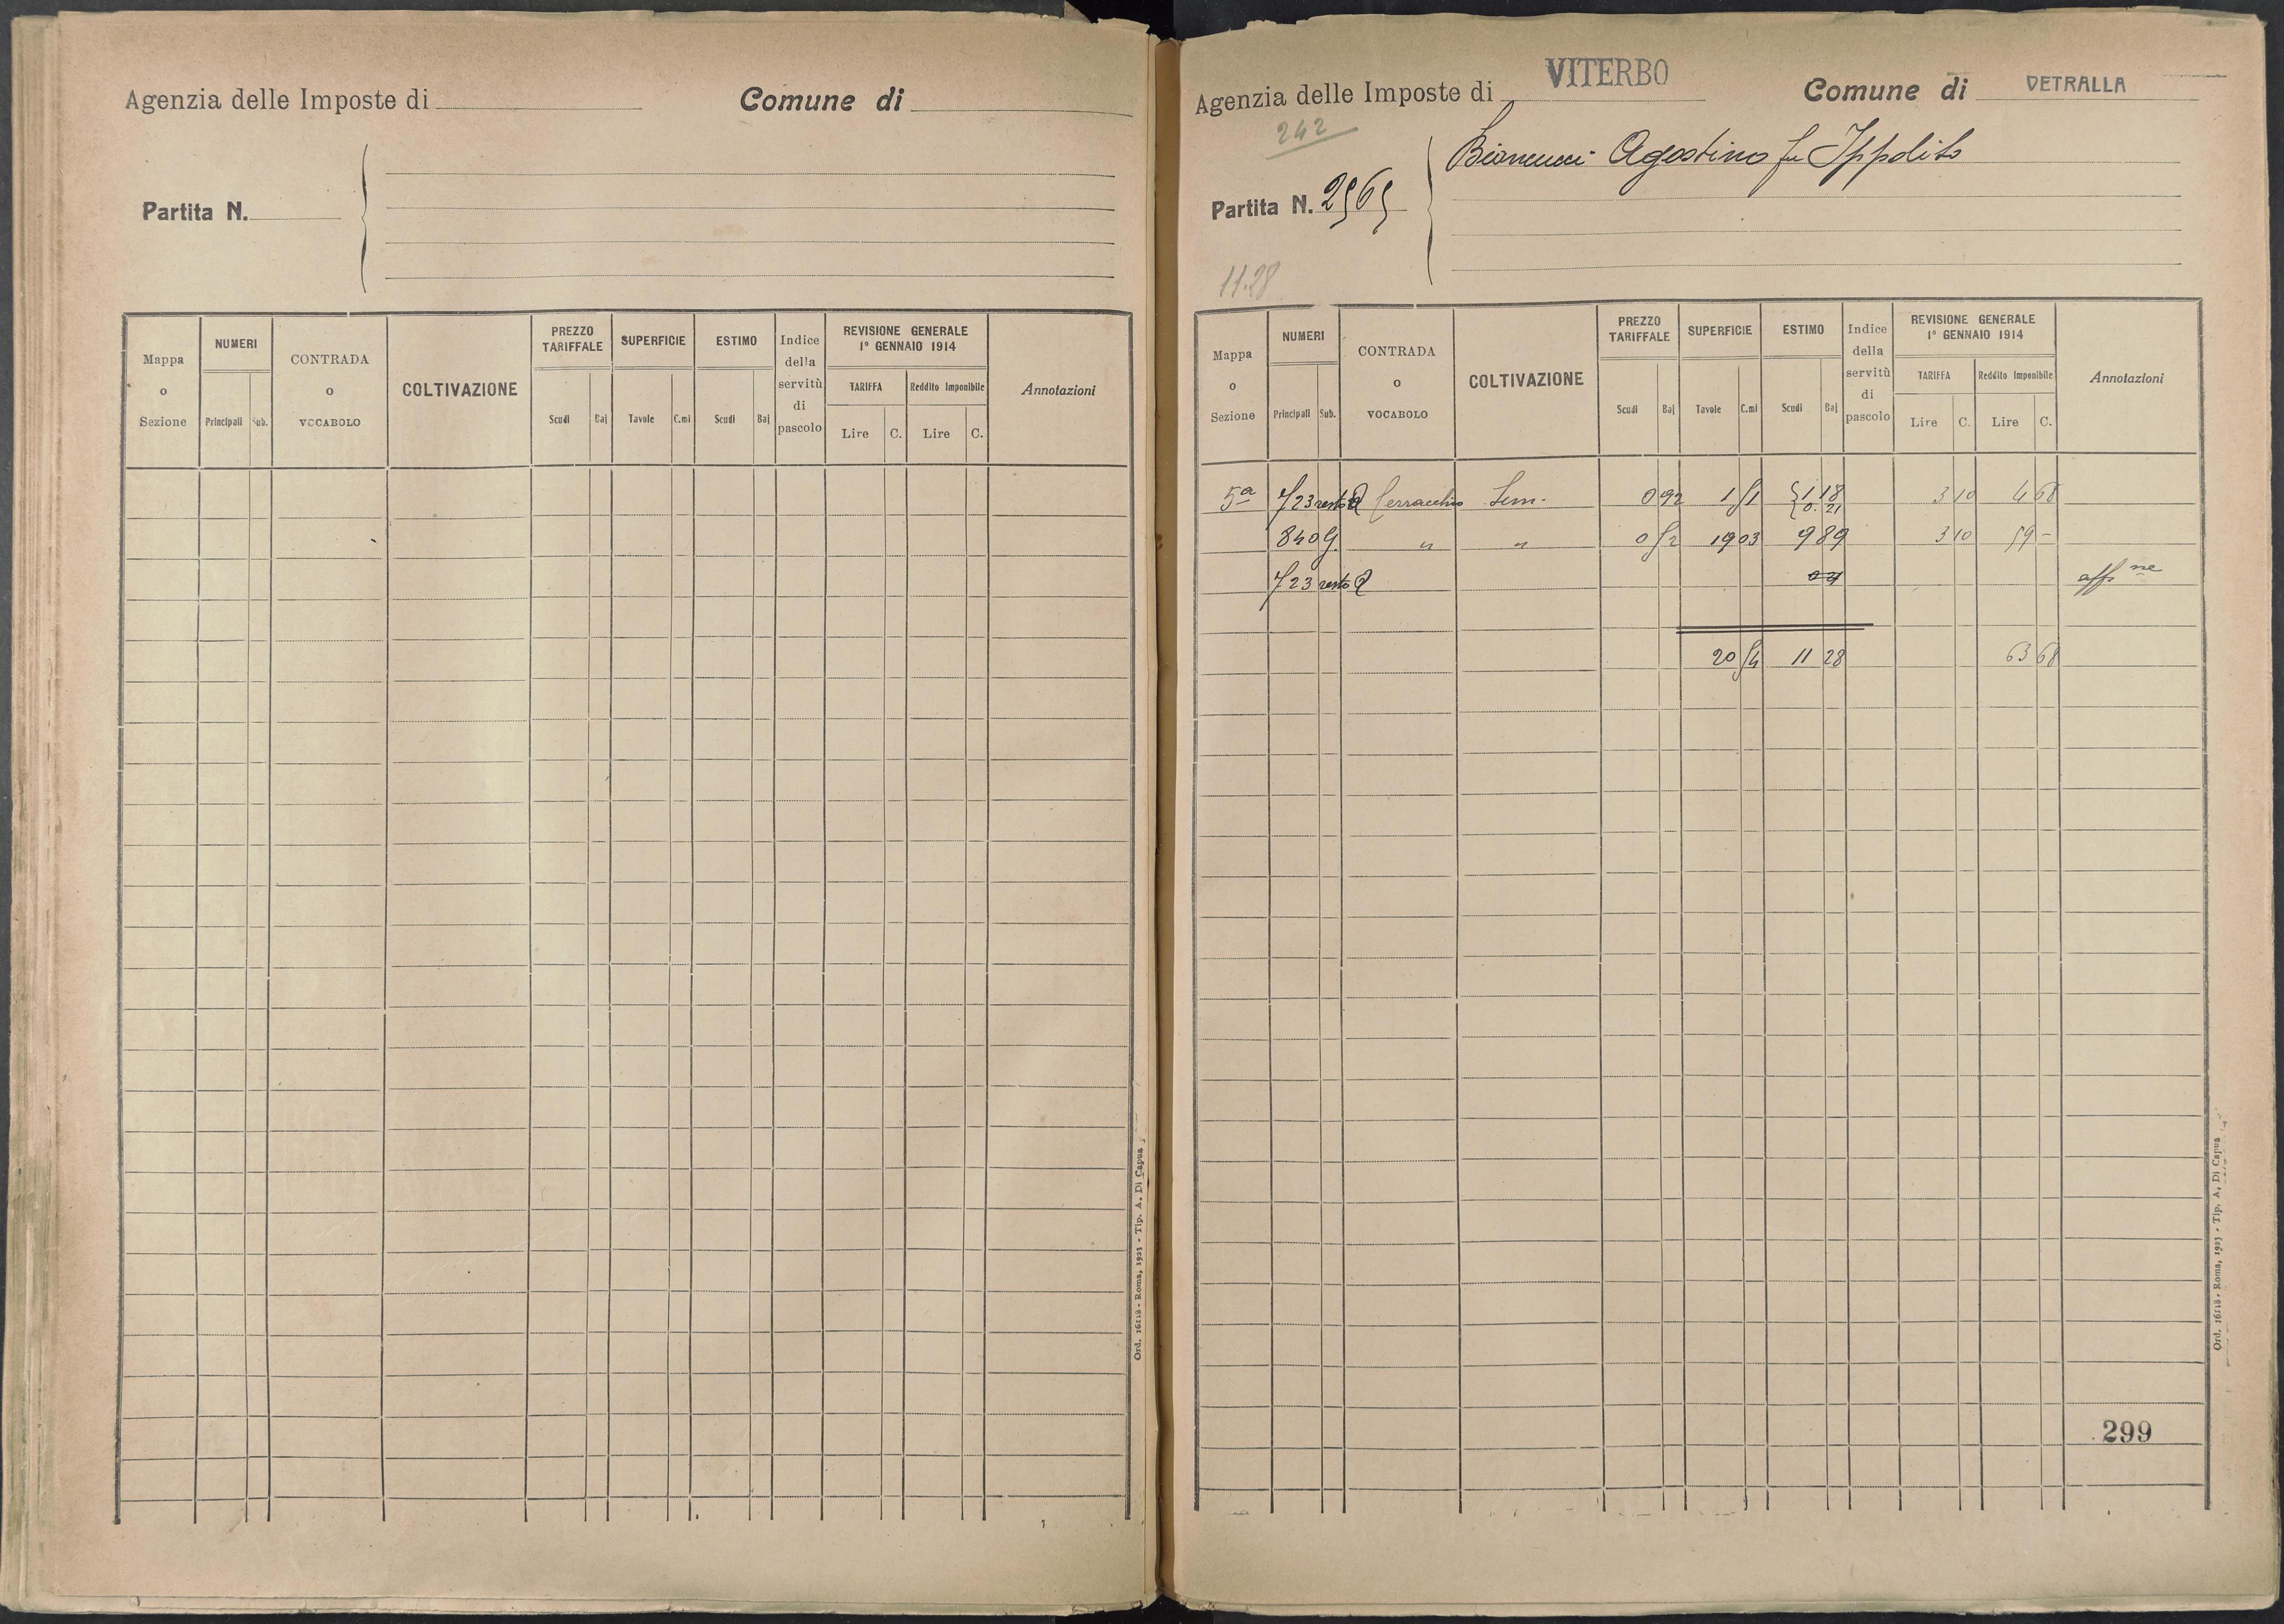 Agenzia delle Imposte di
Comune di
Partita N.
Mappa o Sezione
NUMERI
Principali Sub.
CONTRADA o VOCABOLO
COLTIVAZIONE
PREZZO TARIFFALE
Scudi Baj
SUPERFICIE
Tavole C.mi
ESTIMO
Scudi Baj
Indice della servitù di pascolo
REVISIONE GENERALE
1° GENNAIO 1914
TARIFFA Reddito Imponibile
Lire C. Lire C.
Annotazioni
Ord. 16118 - Roma, 1923 - Tip. A. Di Capua
Agenzia delle Imposte di VITERBO
Comune di VETRALLA
242
Partita N. 2565
Biancucci Agostino fu Ippolito
11.28
Mappa o Sezione
NUMERI
Principali Sub.
CONTRADA o VOCABOLO
COLTIVAZIONE
PREZZO TARIFFALE
Scudi Baj
SUPERFICIE
Tavole C.mi
ESTIMO
Scudi Baj
Indice della servitù di pascolo
REVISIONE GENERALE
1° GENNAIO 1914
TARIFFA Reddito Imponibile
Lire C. Lire C.
Annotazioni
5a 723 resto Cerracchio Sem. 0 92 1 51 1 18 3 10 4 68
0. 21
8409 " " 0 52 19 03 9 89 3 10 59 -
723 resto affne
20 54 11 28 63 68
299
Ord. 16118 - Roma, 1923 - Tip. A. Di Capua